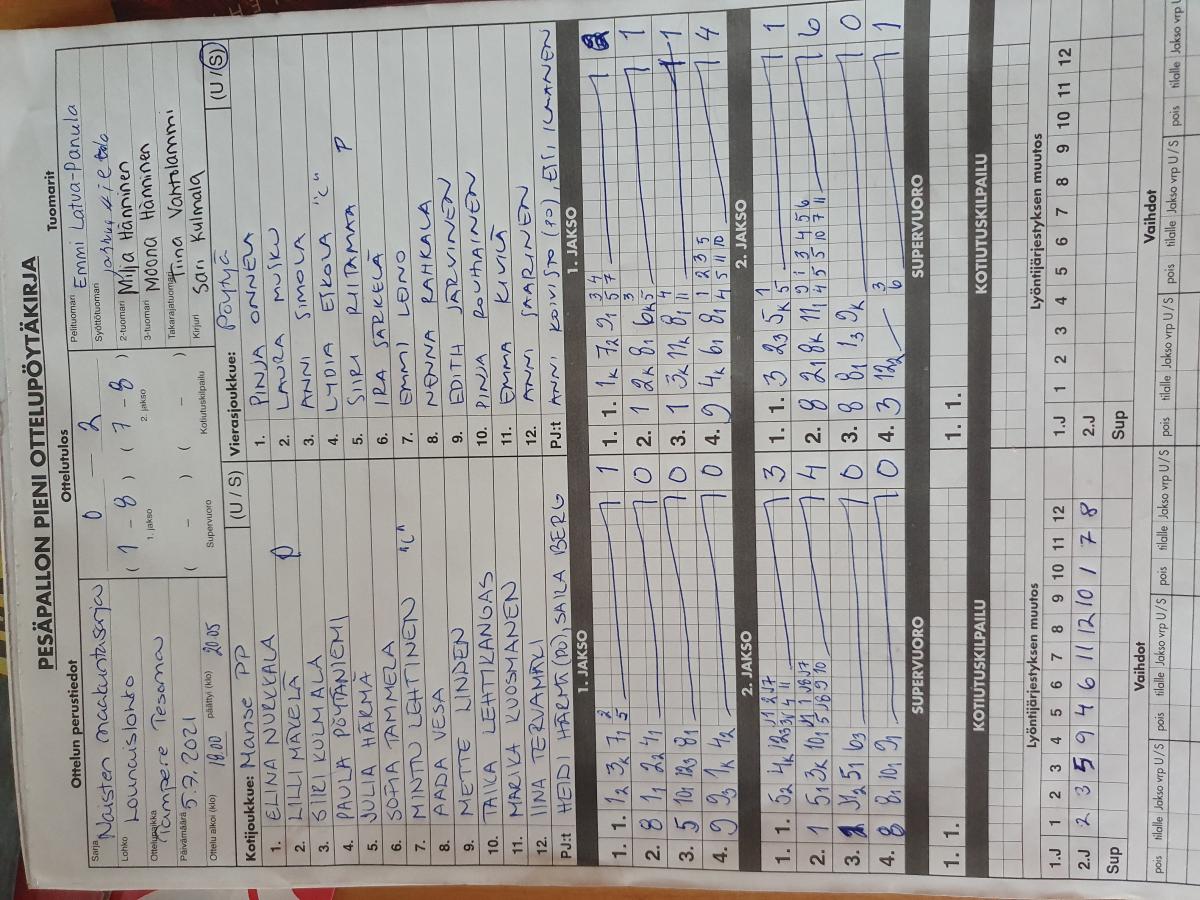 PESÄPALLON PIENI OTTELUPÖYTÄKIRJA
Ottelun perustiedot
Sarja Naisten maakuntasarja
Lohko Lounaislohko
Ottelupaikka Tampere Tesoma
Päivämäärä 5.7.2021
Ottelu alkoi (klo) 18.00 päättyi (klo) 20.05
Ottelutulos
0 2
(1 - 8) (7 - 8)
1. jakso 2. jakso
( - ) ( - )
Supervuoro Kotiutuskilpailu
Tuomarit
Pelituomari Emmi Latva-Panula
Syöttötuomari
2-tuomari Milja Hänninen
3-tuomari Moona Hänninen
Takarajatuomari Tiina Vanhalammi
Kirjuri Sari Kulmala
Kotijoukkue: Manse PP (U / S)
1. ELINA NURKKALA
2. LILLI MÄKELÄ P
3. SIIRI KULMALA
4. PAULA PÖYTÄNIEMI
5. JULIA HÄRMÄ
6. SOFIA TAMMELA
7. MINTU LEHTINEN "C"
8. AADA VESA
9. METTE LINDEN
10. TAIKA LEHTIKANGAS
11. MARIKA KUOSMANEN
12. IINA TERVAMÄKI
PJ:t HEIDI HÄRMÄ (PO), SAILA BERG
Vierasjoukkue: Pöytyä (U / S)
1. PINJA ONNELA
2. LAURA MUSKU
3. ANNI SIMOLA
4. LYDIA EIKOLA "C"
5. SIIRI RIITAMAA P
6. IRA SARKELA
7. EMMI LEINO
8. NENNA RAHKALA
9. EDITH JÄRVINEN
10. PINJA ROUHAINEN
11. EMMA KIVILÄ
12. ANNI SAARINEN
PJ:t ANNI KOIVISTO (PO), ESSI ILMANEN
1. JAKSO
1. 1. 1₂ 3ₖ 7₁ 2 5 1
2. 8 1₁ 2₂ 4₁ 0
3. 5 10₁ 12₃ 8₁ 0
4. 9 9₃ 1ₖ 4₂ 0
1. JAKSO
1. 1. 1ₖ 7₂ 9₁ 3 4 5 7 2
2. 1 2ₖ 8₁ 6ₖ 3 5 1
3. 1 3ₖ 11ₖ 8₁ 4 11 1
4. 9 4ₖ 6₁ 8₁ 1 2 3 5 4 5 11 10 4
2. JAKSO
1. 1. 5₂ 4ₖ 12₃ 3
2. 1 5₁ 3ₖ 10₁ 4
3. 5₁ 6₃ 0
4. 8 8₁ 10₁ 9₁ 0
2. JAKSO
1. 1. 3 2₃ 5ₖ 1 5 1
2. 8 2₁ 8ₖ 11₁ 6
3. 8 8₁ 1₃ 9ₖ 0
4. 3 12₂ 3 6 1
SUPERVUORO
1. 1.
SUPERVUORO
1. 1.
KOTIUTUSKILPAILU
KOTIUTUSKILPAILU
Lyöntijärjestyksen muutos
1.J 1 2 3 4 5 6 7 8 9 10 11 12
2.J 2 3 5 9 4 6 11 12 10 1 7 8
Sup
Lyöntijärjestyksen muutos
1.J 1 2 3 4 5 6 7 8 9 10 11 12
2.J
Sup
Vaihdot
pois tilalle Jakso vrp U / S pois tilalle Jakso vrp U / S
Vaihdot
pois tilalle Jakso vrp U / S pois tilalle Jakso vrp U / S